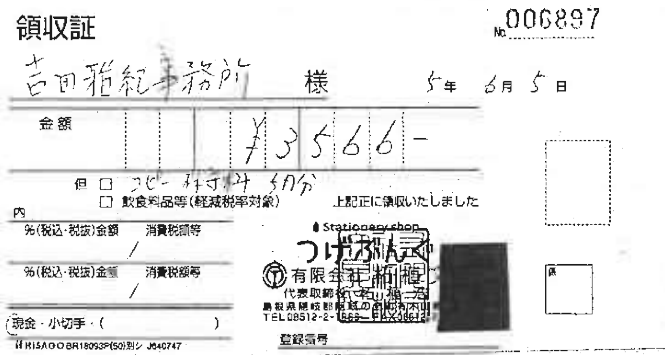 領収証
No. 006897
吉田雅紀事務所 様 5年 6月 5日
金額 ¥3566-
但 □ コピー 5月分
□ 飲食料品等(軽減税率対象) 上記正に領収いたしました
内
%(税込・税抜)金額 消費税額等
/
%(税込・税抜)金額 消費税額等
/
現金・小切手・( )
Stationery shop
つげぶんぐ
有限会社
代表取締役
島根県隠岐郡隠岐の島町
TEL08512-2-
登録番号
係